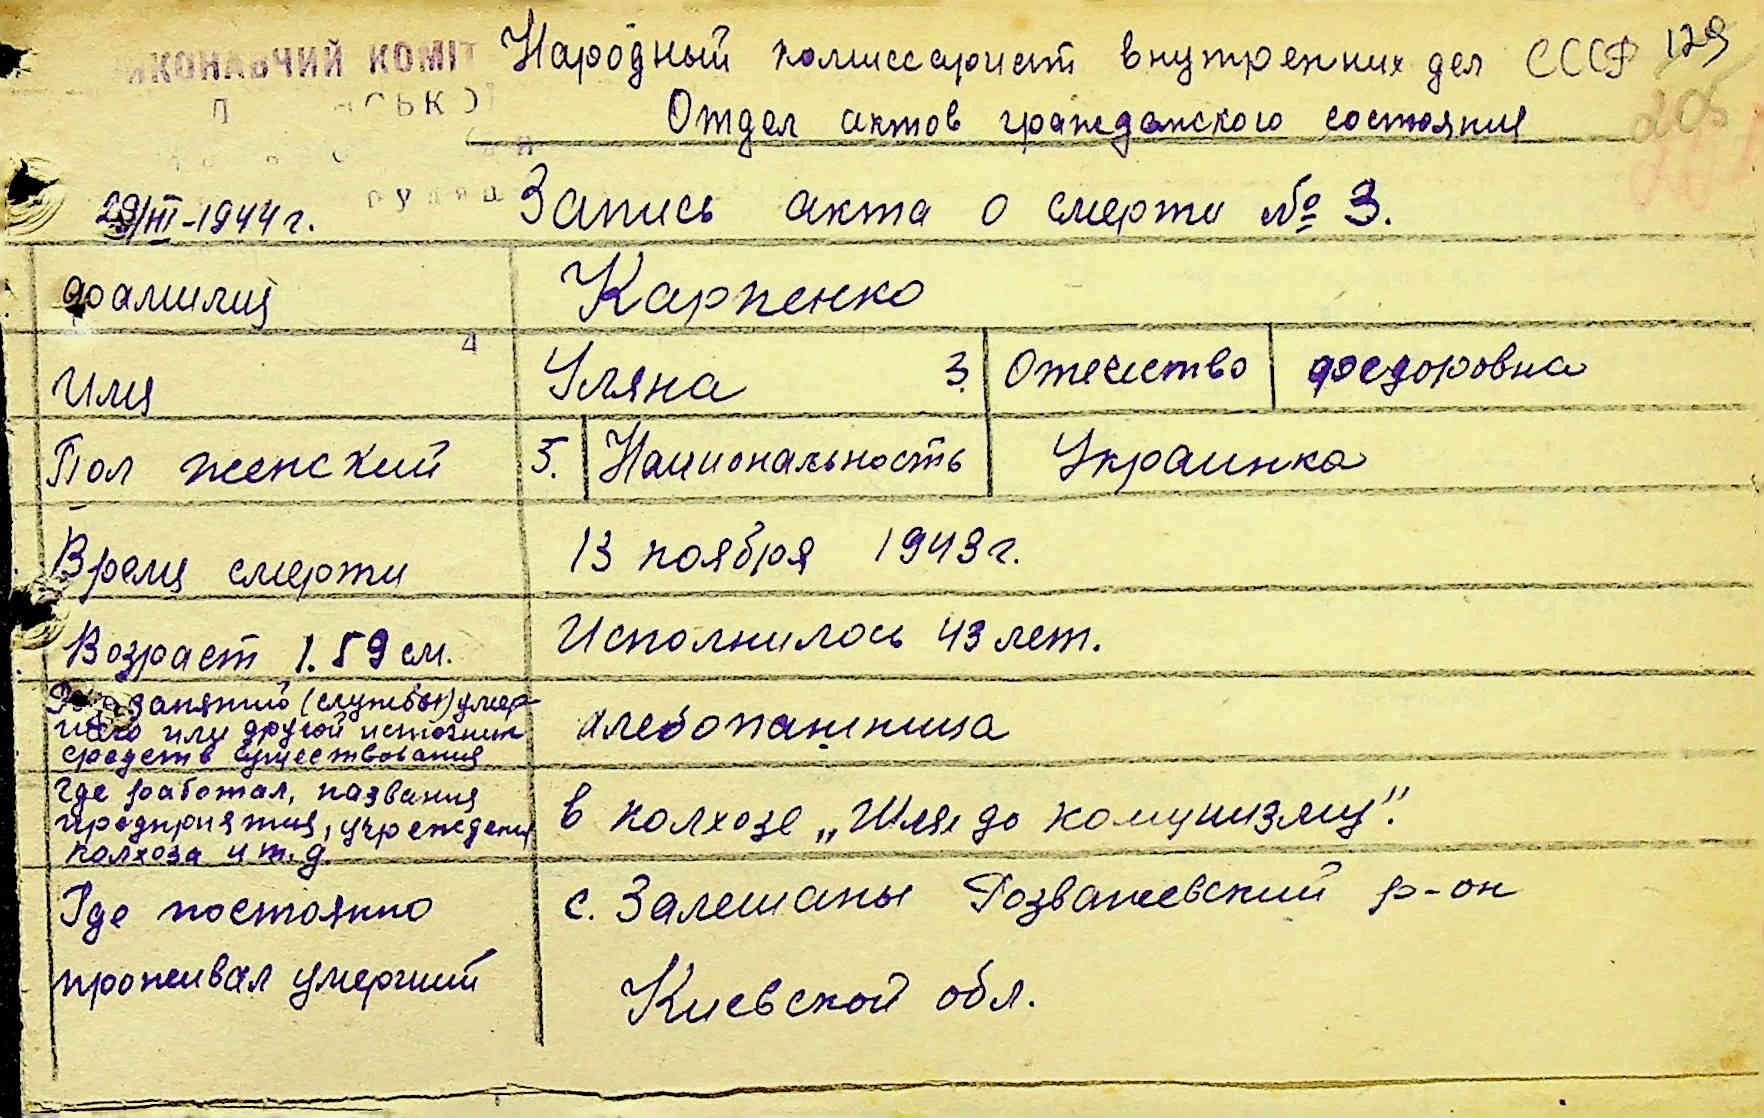 Народный комиссариат внутренних дел СССР 129
КОНАВЧИЙ КОМІТ
Отдел актов гражданского состояния 205
29/III-1944 г. Запись акта о смерти № 3.
фамилия Карпенко
Имя Уляна 3. Отечество федоровна
Пол женский 5. Национальность Украинка
Время смерти 13 ноября 1943 г.
Возраст 1.89 см. Исполнилось 43 лет.
занятий (службы) умер-
шего или другой источник хлебопашница
средств существования
Где работал, названия
предприятия, учреждения в колхозе „Шлях до комунизму".
колхоза и т.д.
Где постоянно с. Залешаны Розважевский р-он
проживал умерший Киевской обл.